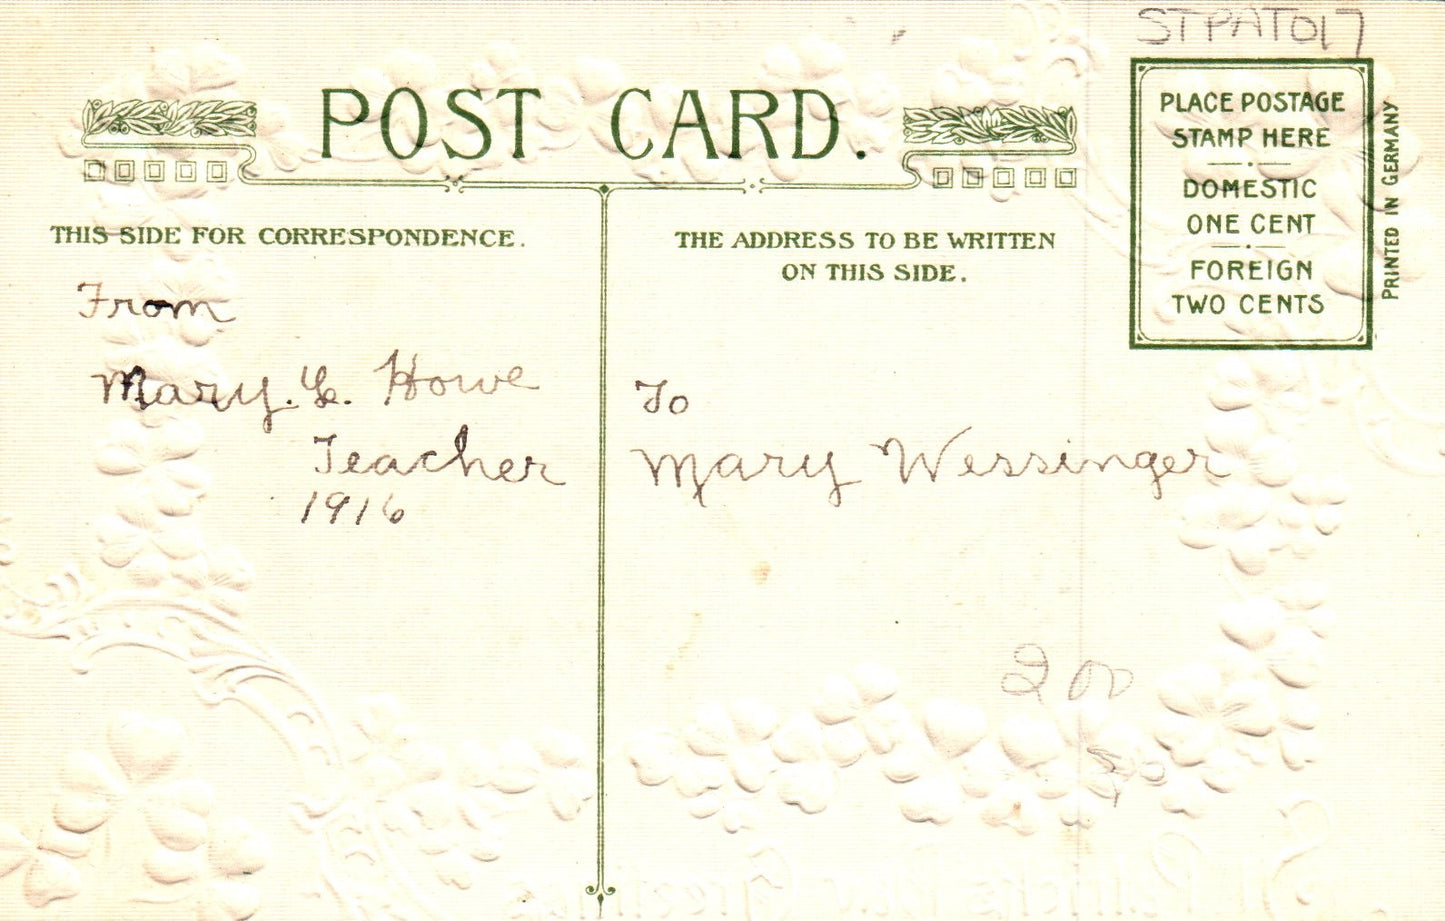 STPAT017
POST CARD.
PLACE POSTAGE
STAMP HERE
DOMESTIC
ONE CENT
FOREIGN
TWO CENTS
PRINTED IN GERMANY
THIS SIDE FOR CORRESPONDENCE.
From
Mary. E. Howe
Teacher
1916
THE ADDRESS TO BE WRITTEN
ON THIS SIDE.
To
Mary Wessinger
200